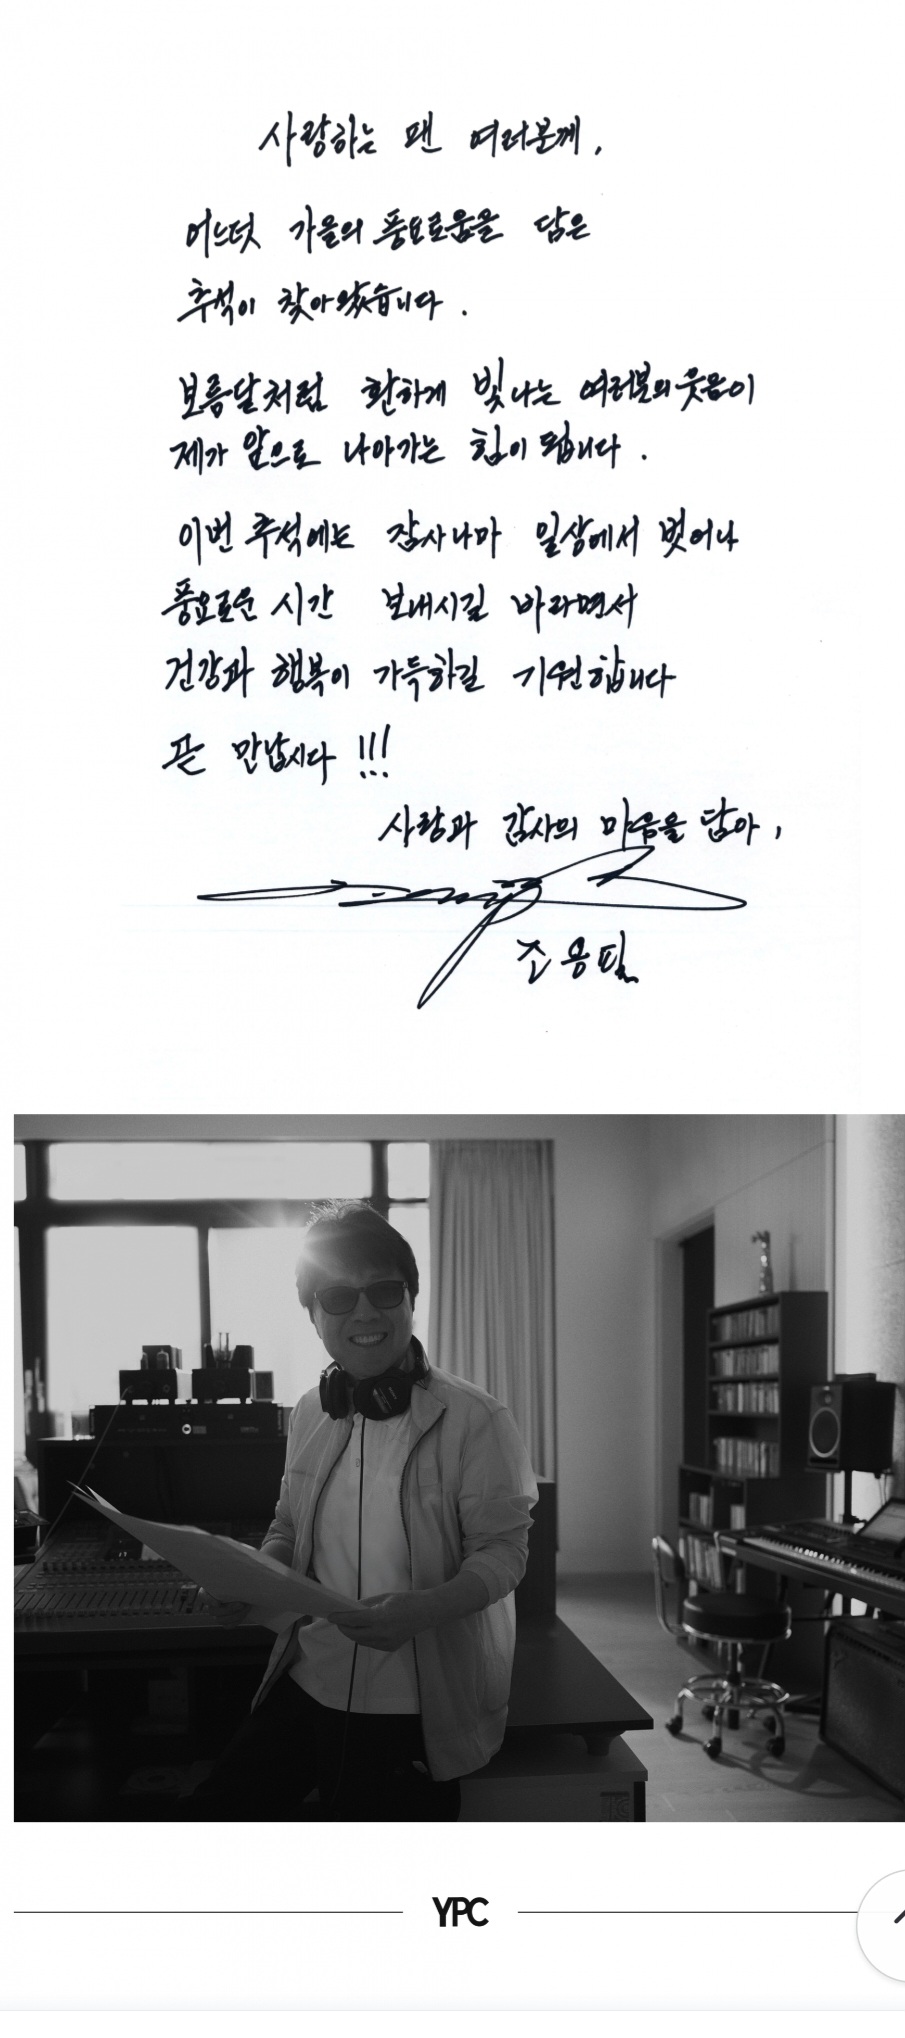 사랑하는 팬 여러분께,
어느덧 가을의 풍요로움을 담은
추석이 찾아왔습니다.
보름달처럼 환하게 빛나는 여러분의 웃음이
제가 앞으로 나아가는 힘이 됩니다.
이번 추석에는 잠시나마 일상에서 벗어나
풍요로운 시간 보내시길 바라면서
건강과 행복이 가득하길 기원합니다
곧 만납시다 !!!
사랑과 감사의 마음을 담아,
조용필
YPC